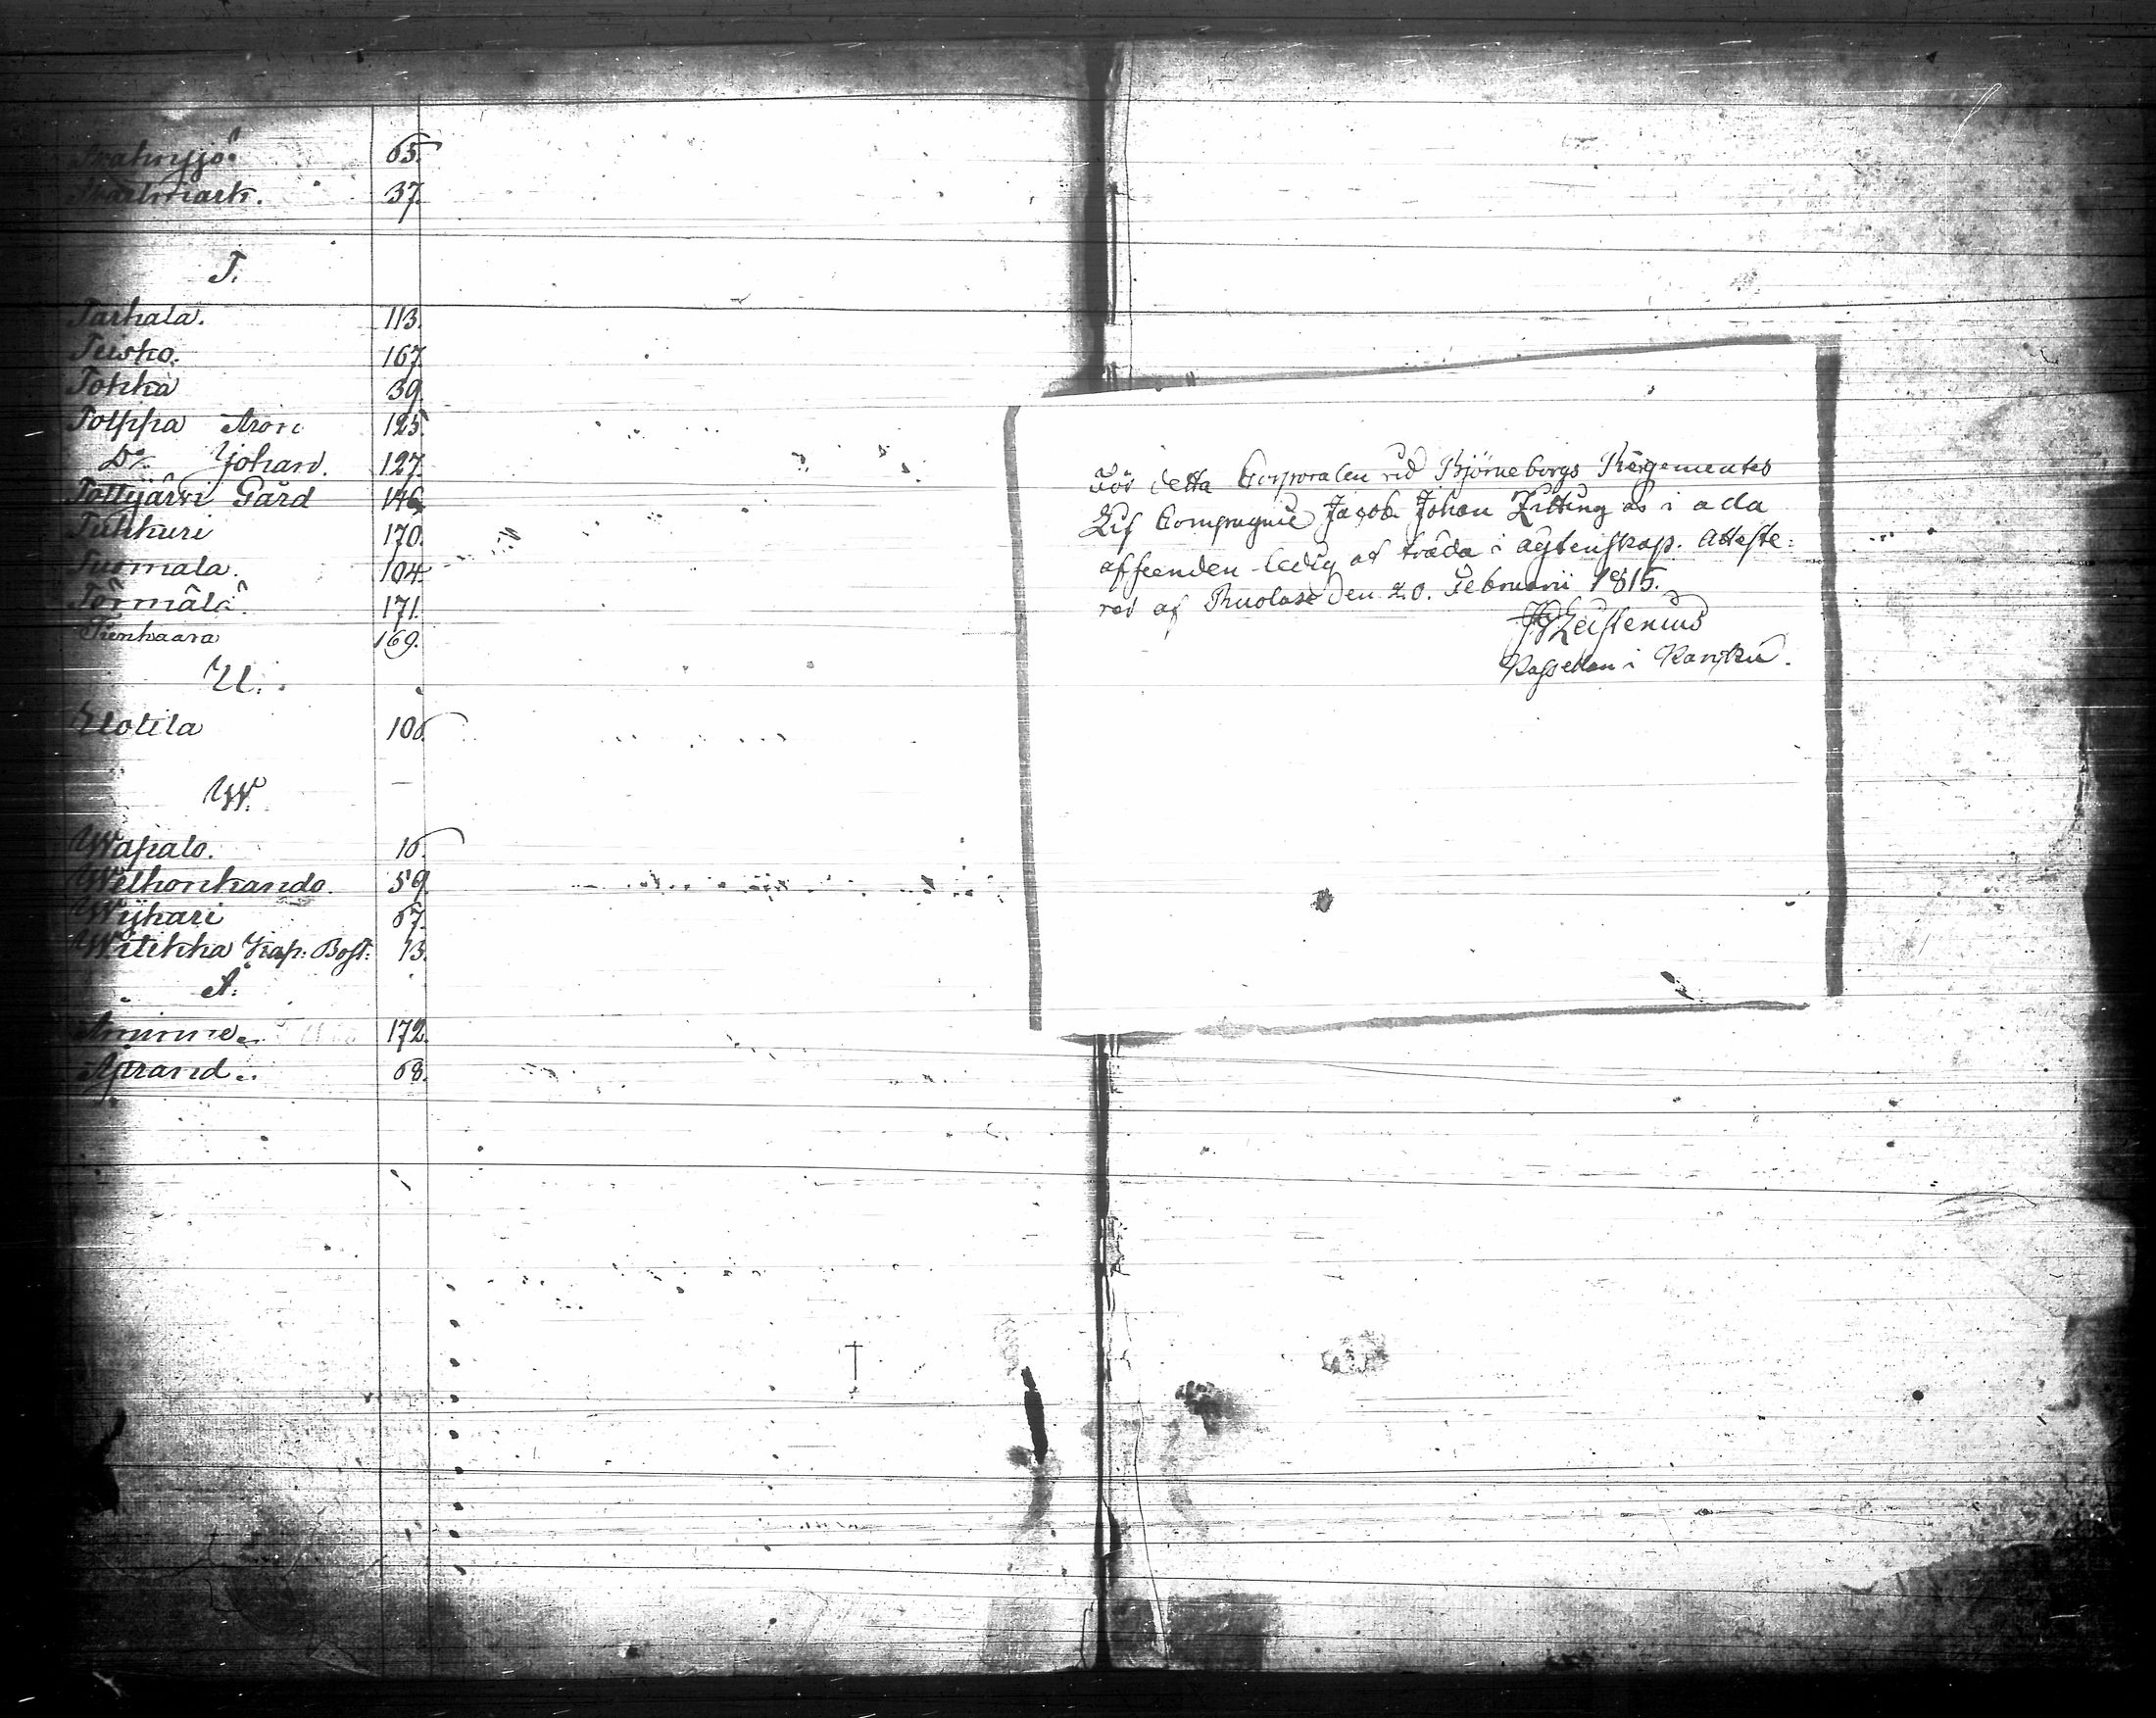 65.
37.
T.
Tarhala. 113.
Teisko. 167.
Tokka 39.
Tolppa Aron 125.
Do Johan. 127.
Tottijärvi Gård 146.
Tukkuri 170.
Tuomala. 104.
Törmälä. 171.
Tienhaara 169.
U.
Uotila 106.
W.
Wapalo. 16.
Welhonhando. 59.
Wijhari 67.
Witikka Kap: Bost: 13.
A:
172.
Åstrand. 68.
För detta Corporalen vid Björneborgs Regementes
Lif Compagnie Jacob Johan Zitting är i alla
afseenden ledig at träda i ägtenskap. Atteste:
ras af Ruolax den 20. Februarii 1815.
Zeistenius
i Karkku.